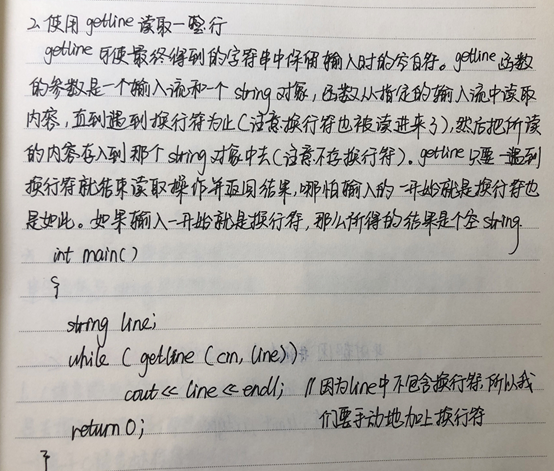 2.使用getline读取一整行
getline可使最终得到的字符串中保留输入时的空白符。getline函数
的参数是一个输入流和一个string对象,函数从指定的输入流中读取
内容,直到遇到换行符为止(注意换行符也被读进来了),然后把所读
的内容存入到那个string对象中去(注意不存换行符)。getline只要一遇到
换行符就结束读取操作并返回结果,哪怕输入的一开始就是换行符也
是如此。如果输入一开始就是换行符,那么所得的结果是个空string.
int main()
{
string line;
while (getline(cin, line))
cout<< line << endl; //因为line中不包含换行符,所以我
们要手动地加上换行符
return 0;
}